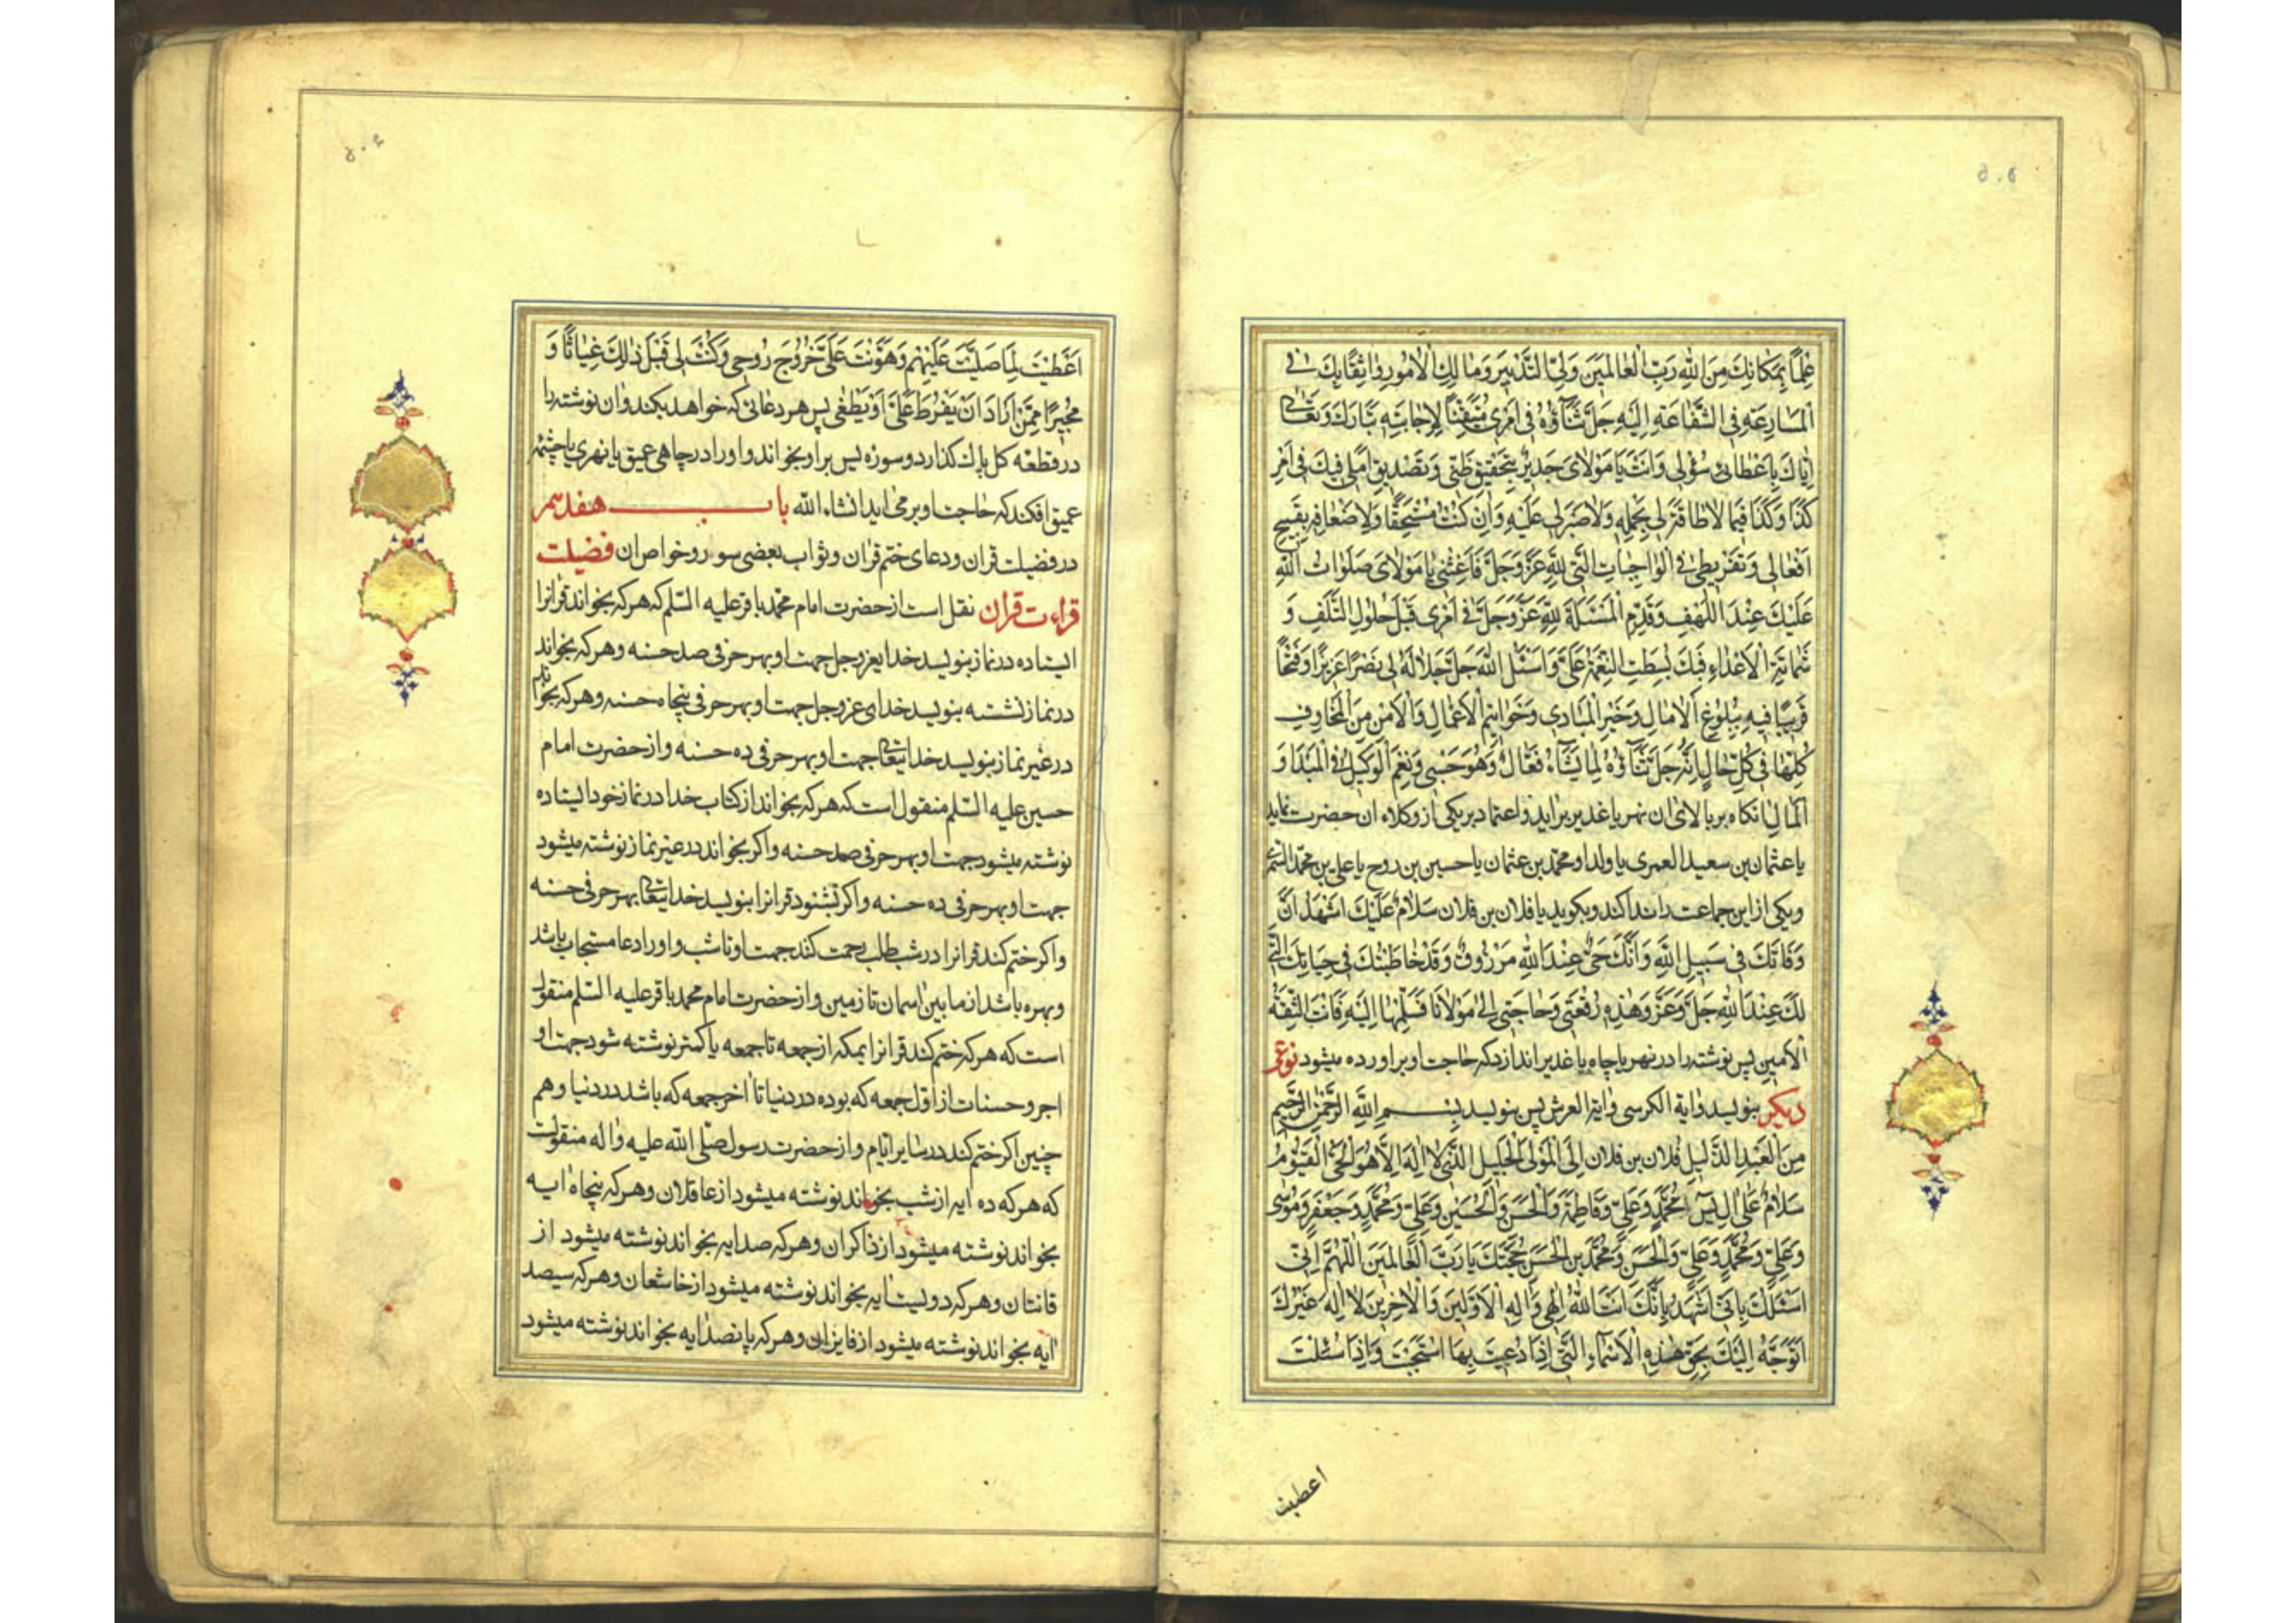 ۵۰۵
عِلْمًا بِمَكَانِكَ مِنَ اللهِ رَبِّ الْعَالَمِينَ وَلِيِّ التَّدْبِيرِ وَمَالِكِ الْأُمُورِ وَاثِقًا بِكَ فِي
الْمُسَارَعَةِ فِي الشَّفَاعَةِ إِلَيْهِ جَلَّ ثَنَاؤُهُ فِي أَمْرِي مُتَيَقِّنًا لِإِجَابَتِهِ تَبَارَكَ وَتَعَالَى
إِيَّاكَ بِإِعْطَائِي سُؤْلِي وَأَنْتَ يَا مَوْلَايَ جَدِيرٌ بِتَحْقِيقِ ظَنِّي وَتَصْدِيقِ أَمَلِي فِيكَ فِي أَمْرِ
كَذَا وَكَذَا فِيمَا لَا طَاقَةَ لِي بِحَمْلِهِ وَلَا صَبْرَ لِي عَلَيْهِ وَإِنْ كُنْتُ مُسْتَحِقًّا وَلِأَضْعَافِهِ بِقَبِيحِ
أَفْعَالِي وَتَفْرِيطِي فِي الْوَاجِبَاتِ الَّتِي لِلَّهِ عَزَّ وَجَلَّ فَأَغِثْنِي يَا مَوْلَايَ صَلَوَاتُ اللهِ
عَلَيْكَ عِنْدَ اللَّهْفِ وَقَدِّمِ الْمَسْئَلَةَ لِلَّهِ عَزَّ وَجَلَّ فِي أَمْرِي قَبْلَ حُلُولِ التَّلَفِ وَ
شَمَاتَةِ الْأَعْدَاءِ فَبِكَ بُسِطَتِ النِّعْمَةُ عَلَيَّ وَاسْئَلِ اللهَ جَلَّ جَلَالُهُ لِي نَصْرًا عَزِيزًا وَفَتْحًا
قَرِيبًا فِيهِ بُلُوغُ الْآمَالِ وَخَيْرُ الْمَبَادِي وَخَوَاتِيمِ الْأَعْمَالِ وَالْأَمْنِ مِنَ الْمَخَاوِفِ
كُلِّهَا فِي كُلِّ حَالٍ إِنَّهُ جَلَّ ثَنَاؤُهُ لِمَا يَشَاءُ فَعَّالٌ وَهُوَ حَسْبِي وَنِعْمَ الْوَكِيلُ فِي الْمَبْدَاِ وَ
الْمَآلِ انكاه بر بالای ان نهر یا غدیر براید و اعتماد بر یکی از وکلاء ان حضرت نماید
یا عثمان بن سعید العمری یا ولد او محمد بن عثمان یا حسین بن روح یا علی بن محمد السمری
و یکی از این جماعت را ندا کند و بکوید یا فلان بن فلان سَلَامٌ عَلَيْكَ اَشْهَدُ اَنَّ
وَفَاتَكَ فِي سَبِيلِ اللهِ وَأَنَّكَ حَيٌّ عِنْدَ اللهِ مَرْزُوقٌ وَقَدْ خَاطَبْتُكَ فِي حَيَاتِكَ الَّتِي
لَكَ عِنْدَ اللهِ جَلَّ وَعَزَّ وَهَذِهِ رُقْعَتِي وَحَاجَتِي إِلَى مَوْلَانَا فَسَلِّمْهَا إِلَيْهِ فَأَنْتَ الثِّقَةُ
الْأَمِينُ پس نوشته را در نهر یا چاه یا غدیر اندازد که حاجت او براورده میشود نوعی
دیکر بنویسد وایة الکرسی وایة العرش پس بنویسد بِسْمِ اللهِ الرَّحْمَنِ الرَّحِيمِ
مِنَ الْعَبْدِ الذَّلِيلِ فُلَانِ بن فُلَان اِلَى الْمَوْلَى الْجَلِيلِ الَّذِي لَا اِلَهَ اِلَّا هُوَ الْحَيُّ الْقَيُّومُ
سَلَامٌ عَلَى اٰلِ يٰسٓ مُحَمَّدٍ وَعَلِيٍّ وَفَاطِمَةَ وَالْحَسَنِ وَالْحُسَيْنِ وَعَلِيٍّ وَمُحَمَّدٍ وَجَعْفَرٍ وَمُوسَى
وَعَلِيٍّ وَمُحَمَّدٍ وَعَلِيٍّ وَالْحَسَنِ وَمُحَمَّدِ بْنِ الْحَسَنِ حُجَّتِكَ يَا رَبَّ الْعَالَمِينَ اَللّٰهُمَّ اِنِّي
اَسْئَلُكَ بِاَنِّي اَشْهَدُ بِاَنَّكَ اَنْتَ اللهُ اِلٰهِي وَاِلٰهُ الْاَوَّلِينَ وَالْاٰخِرِينَ لَا اِلٰهَ غَيْرُكَ
اَتَوَجَّهُ اِلَيْكَ بِحَقِّ هٰذِهِ الْاَسْمَاءِ الَّتِي اِذَا دُعِيتَ بِهَا اَسْتَجَبْتَ وَاِذَا سُئِلْتَ
اعطیت
۵۰۶
اَعْطَيْتَ لَمَّا صَلَّيْتَ عَلَيْهِمْ وَهَوَّنْتَ عَلَيَّ خُرُوجَ رُوحِي وَكُنْتَ لِي قَبْلَ ذٰلِكَ غِيَاثًا وَ
مُجِيرًا مِمَّنْ اَرَادَ اَنْ يَفْرُطَ عَلَيَّ اَوْ يَطْغٰى پس هر دعائی که خواهد بکند وان نوشته را
در قطعه کل پاك کذارد و سوره یس بر او بخواند و او را در چاهی عمیق یا نهری یا چشمه
عمیق افکند که حاجت او بر می اید انشاء الله باب هفدهم
در فضیلت قران و دعای ختم قران و ثواب بعضی سور و خواص ان فضیلت
قراءت قران نقل است از حضرت امام محمد باقر علیه السلم که هر که بخواند قرانرا
ایستاده در نماز بنویسد خدایعز وجل جهت او بهر حرفی صد حسنه و هر که بخواند
در نماز نشسته بنویسد خدای عز وجل جهت او بهر حرفی پنجاه حسنه و هر که بخواند
در غیر نماز بنویسد خدایتعالی جهت او بهر حرفی ده حسنه و از حضرت امام
حسین علیه السلم منقول است که هر که بخواند از کتاب خدا در نماز خود ایستاده
نوشته میشود جهت او بهر حرفی صد حسنه و اکر بخواند در غیر نماز نوشته میشود
جهت او بهر حرفی ده حسنه و اکر بشنود قرانرا بنویسد خدایتعالی بهر حرفی حسنه
و اکر ختم کند قرانرا در شب طلب رحمت کند جهت او تا شب و او را دعا مستجاب باشد
و بهره باشد از ما بین اسمان تا زمین و از حضرت امام محمد باقر علیه السلم منقول
است که هر که ختم کند قرانرا بمکه از جمعه تا جمعه یا کمتر نوشته شود جهت او
اجر و حسنات از اول جمعه که بوده در دنیا تا اخر جمعه که باشد در دنیا و هم
چنین اکر ختم کند در سایر ایام و از حضرت رسول صلی الله علیه واله منقولست
که هر که ده ایه از شب بخواند نوشته میشود از عاقلان و هر که پنجاه ایه
بخواند نوشته میشود از ذاکران و هر که صد ایه بخواند نوشته میشود از
قانتان و هر که دویست ایه بخواند نوشته میشود از خاشعان و هر که سیصد
ایه بخواند نوشته میشود از فایزان و هر که پانصد ایه بخواند نوشته میشود